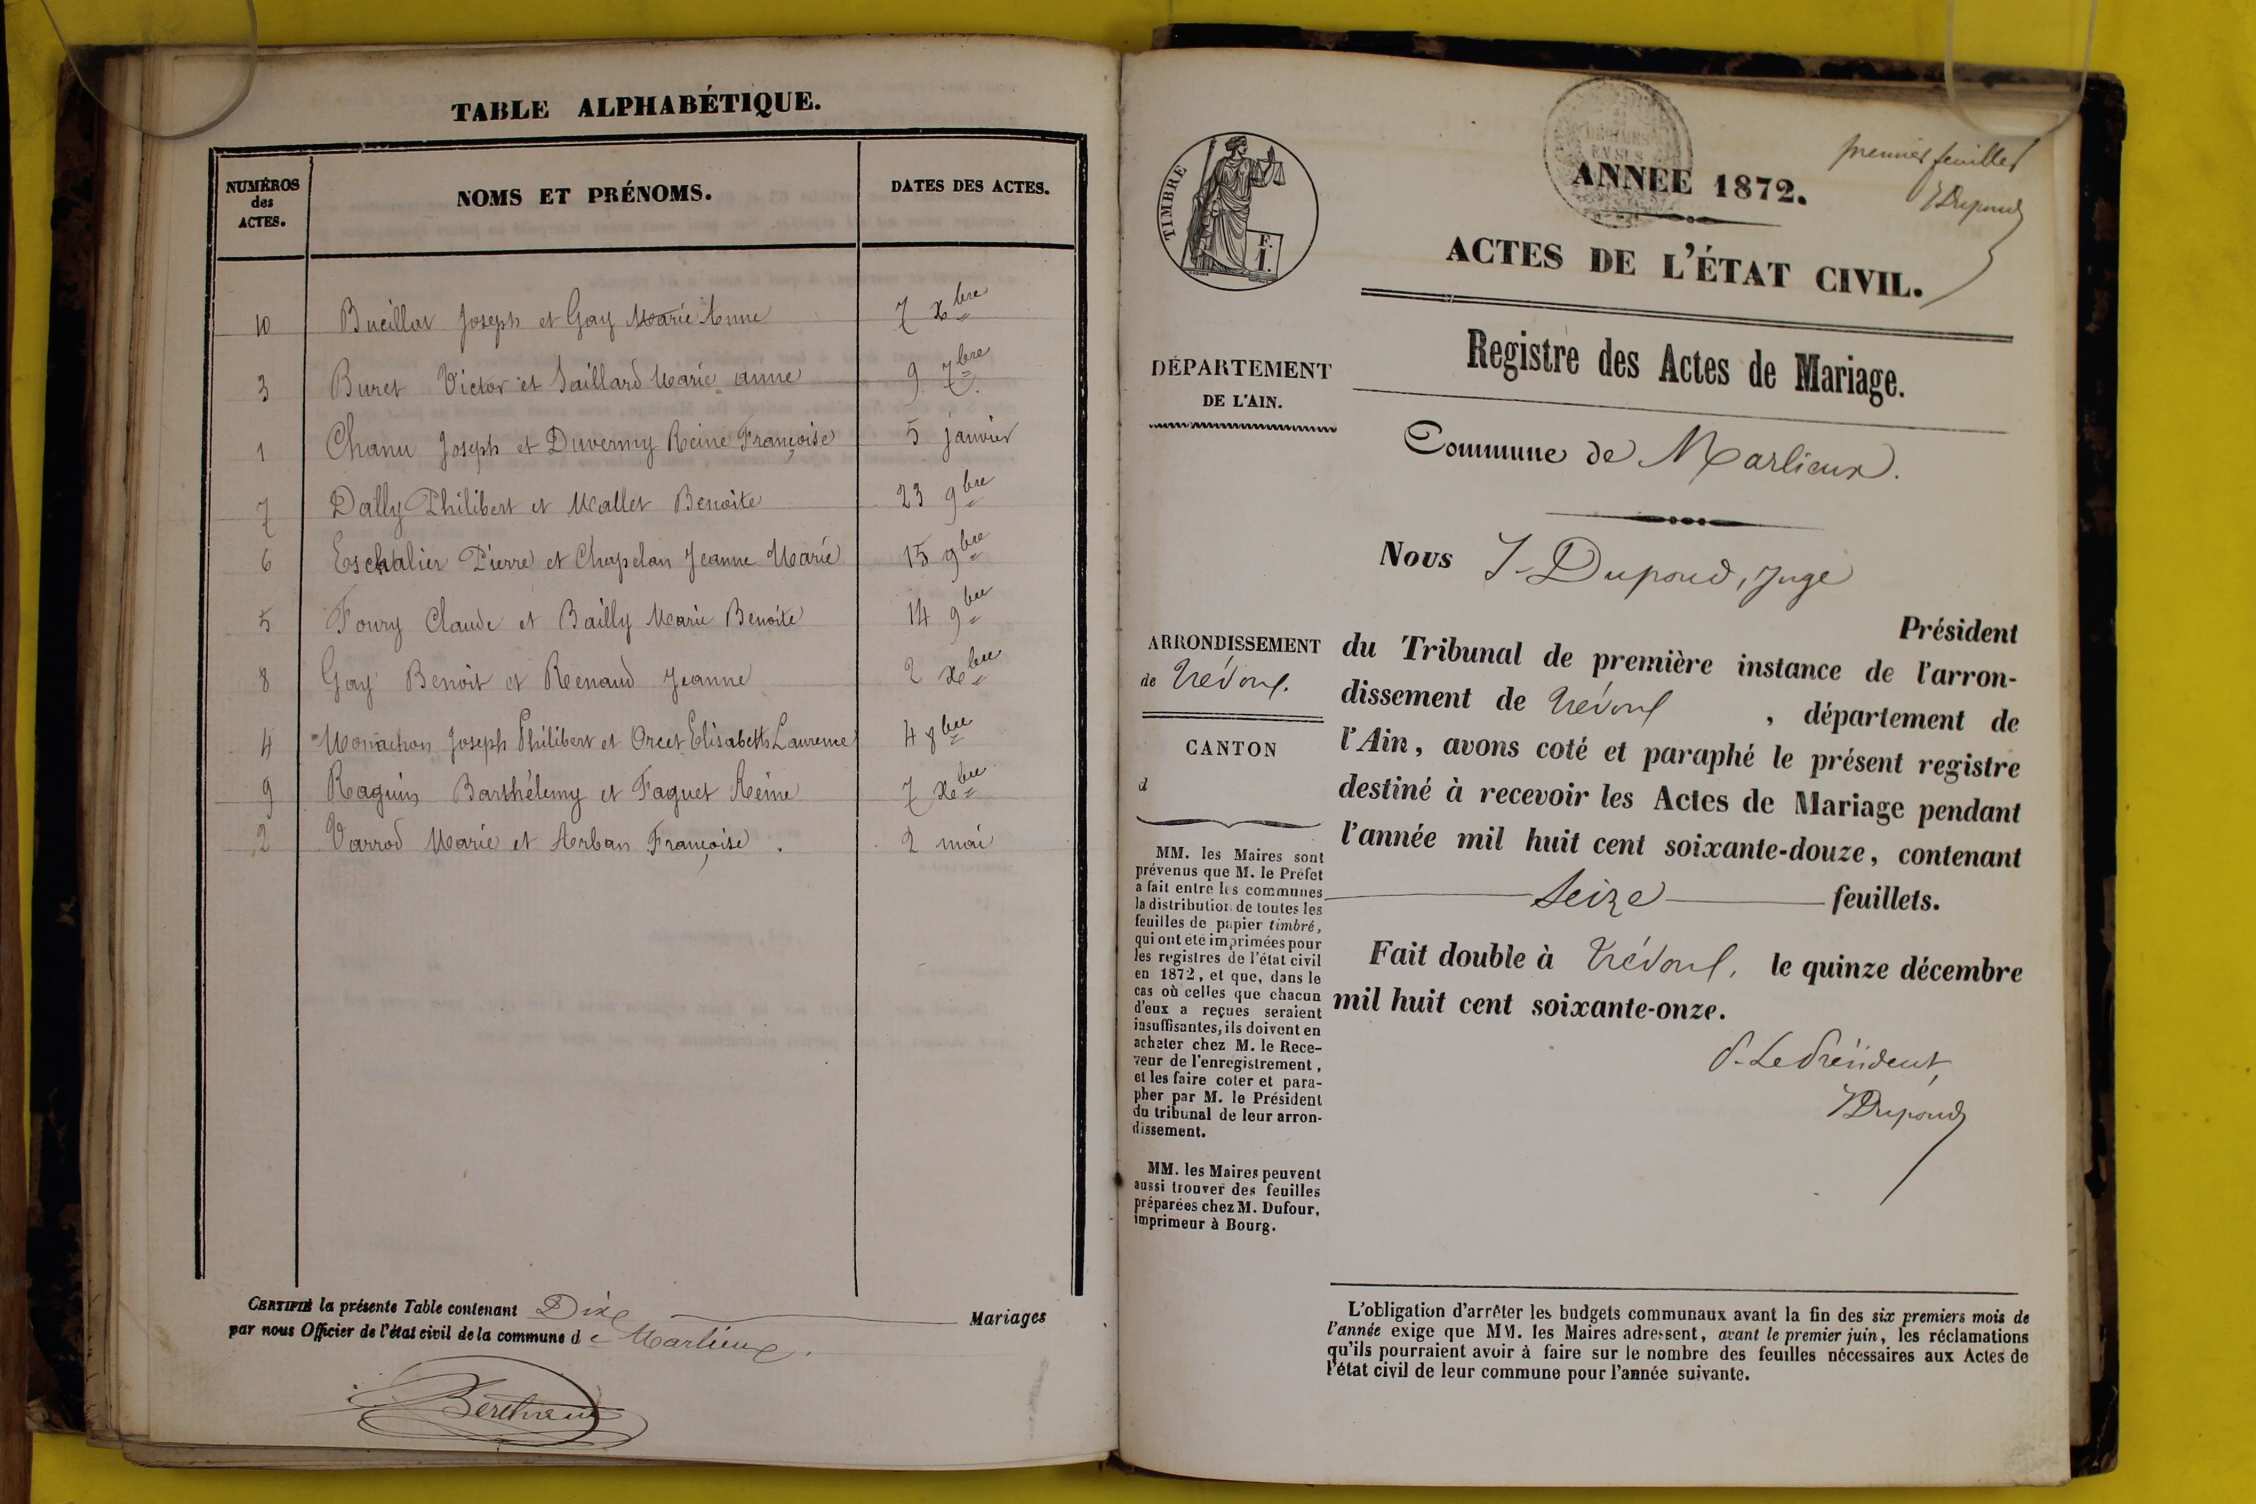 TABLE ALPHABÉTIQUE.
NUMÉROS des ACTES. NOMS ET PRÉNOMS. DATES DES ACTES.
10 Bucillat Joseph et Gay Marie Anne 7 xbre
3 Buret Victor et Saillard Marie anne 9 7bre
1 Chanu Joseph et Duverny Reine Françoise 5 janvier
7 Dally Philibert et Mallet Benoite 23 9bre
6 Pierre et Chapelan Jeanne Marie 15 9bre
5 Foury Claude et Bailly Marie Benoite 14 9bre
8 Gay Benoit et Renaud Jeanne 2 xbre
4 Monachon Joseph Philibert et Orcet Elisabeth Laurence 4 8bre
9 Raguin Barthélemy et Faguet Reine 7 xbre
2 Varrod Marie et Arban Françoise. 2 mai
CERTIFIÉ la présente Table contenant Dix Mariages
par nous Officier de l'état civil de la commune de Marlieux.
TIMBRE
F.
1.
premier feuillet
JDupond
ANNÉE 1872.
ACTES DE L'ÉTAT CIVIL.
Registre des Actes de Mariage.
DÉPARTEMENT
DE L'AIN.
Commune de Marlieux.
Nous J. Dupond, Juge
Président
ARRONDISSEMENT
de Trévoux.
CANTON
d
du Tribunal de première instance de l'arron-
dissement de Trévoux, département de
l'Ain, avons coté et paraphé le présent registre
destiné à recevoir les Actes de Mariage pendant
l'année mil huit cent soixante-douze, contenant
Seize feuillets.
Fait double à Trévoux, le quinze décembre
mil huit cent soixante-onze.
P. Le Président,
JDupond
MM. les Maires sont
prévenus que M. le Préfet
a fait entre les communes
la distribution de toutes les
feuilles de papier timbré,
qui ont été imprimées pour
les registres de l'état civil
en 1872, et que, dans le
cas où celles que chacun
d'eux a reçues seraient
insuffisantes, ils doivent en
acheter chez M. le Rece-
veur de l'enregistrement,
et les faire coter et para-
pher par M. le Président
du tribunal de leur arron-
dissement.
MM. les Maires peuvent
aussi trouver des feuilles
préparées chez M. Dufour,
imprimeur à Bourg.
L'obligation d'arrêter les budgets communaux avant la fin des six premiers mois de
l'année exige que MM. les Maires adressent, avant le premier juin, les réclamations
qu'ils pourraient avoir à faire sur le nombre des feuilles nécessaires aux Actes de
l'état civil de leur commune pour l'année suivante.